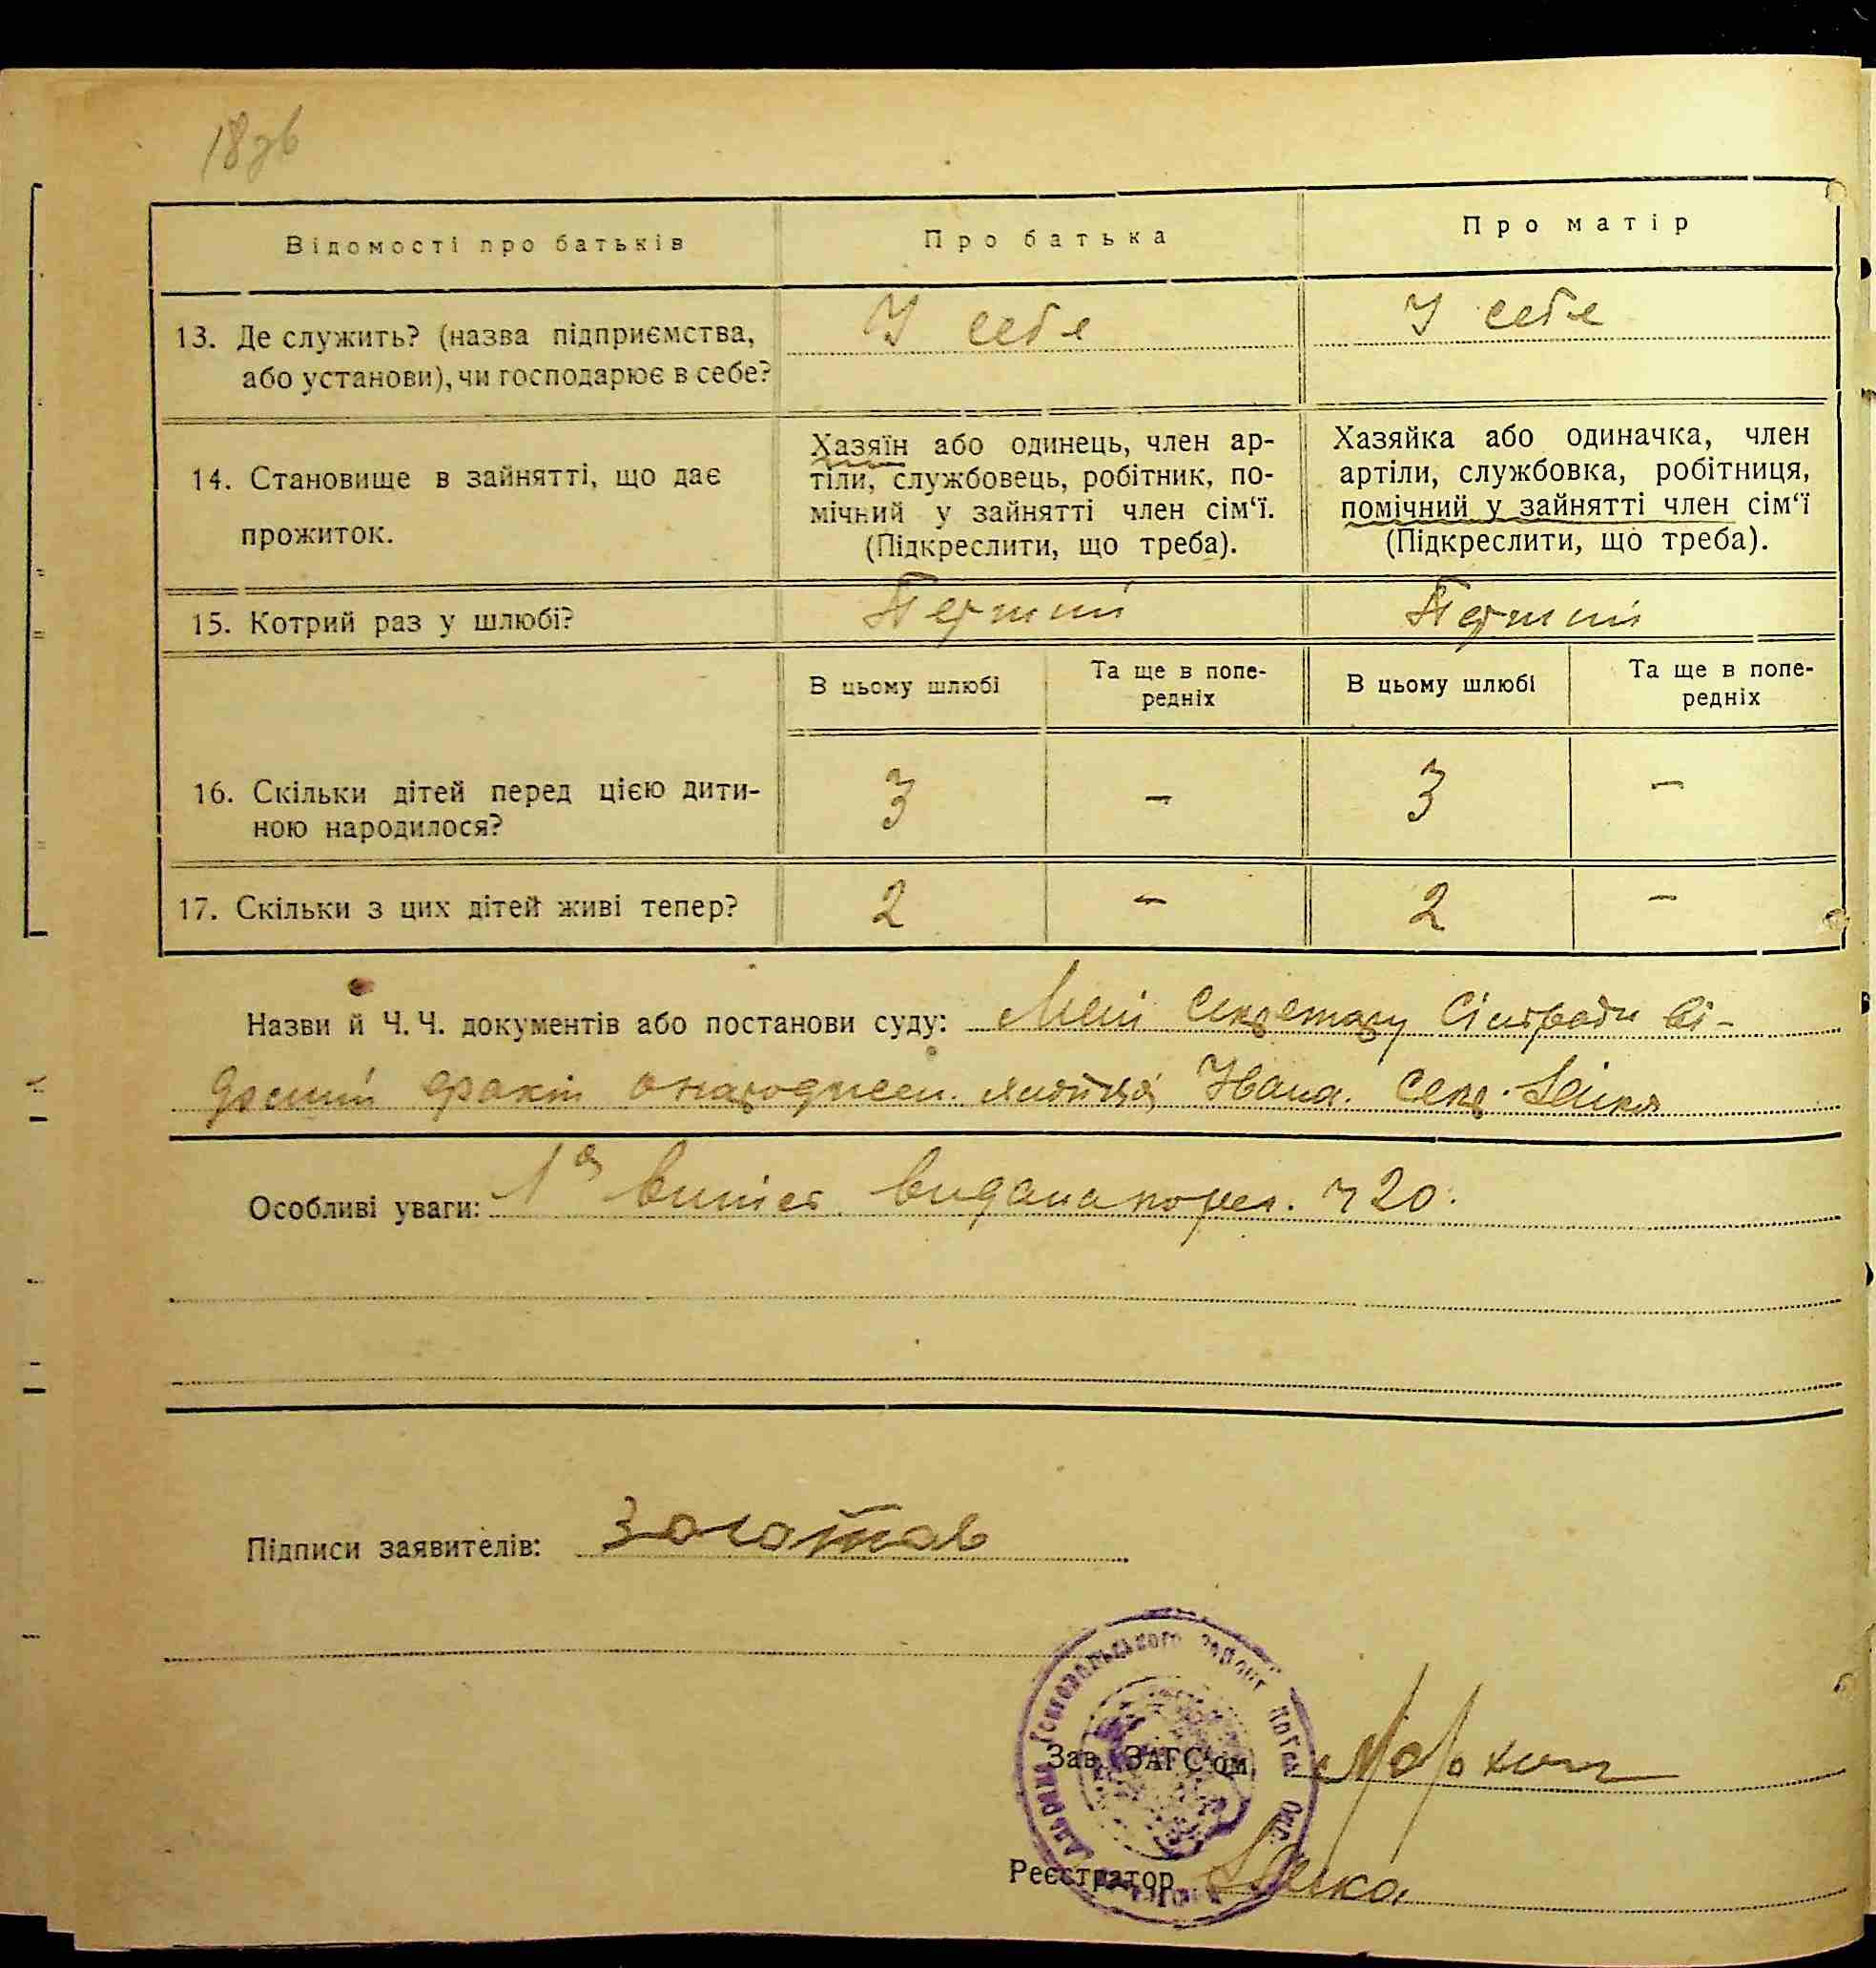 18зв
Відомості про батьків
Про батька
Про матір
13. Де служить? (назва підприємства,
або установи), чи господарює в себе?
У себе
У себе
14. Становище в зайнятті, що дає
прожиток.
Хазяїн або одинець, член ар-
тіли, службовець, робітник, по-
мічний у зайнятті член сім‘ї.
(Підкреслити, що треба).
Хазяйка або одиначка, член
артіли, службовка, робітниця,
помічний у зайнятті член сім‘ї
(Підкреслити, що треба).
15. Котрий раз у шлюбі?
Перший
Перший
В цьому шлюбі
Та ще в попе-
редніх
В цьому шлюбі
Та ще в попе-
редніх
16. Скільки дітей перед цією дити-
ною народилося?
3
-
3
-
17. Скільки з цих дітей живі тепер?
2
-
2
-
Назви й Ч. Ч. документів або постанови суду: Мені Секретарю Сільради ві-
домий факт Івана. Секр.
Особливі уваги: 1а видана 20.
Підписи заявителів: Золотов
району
Зав. ЗАГС‘ом
Реєстратор